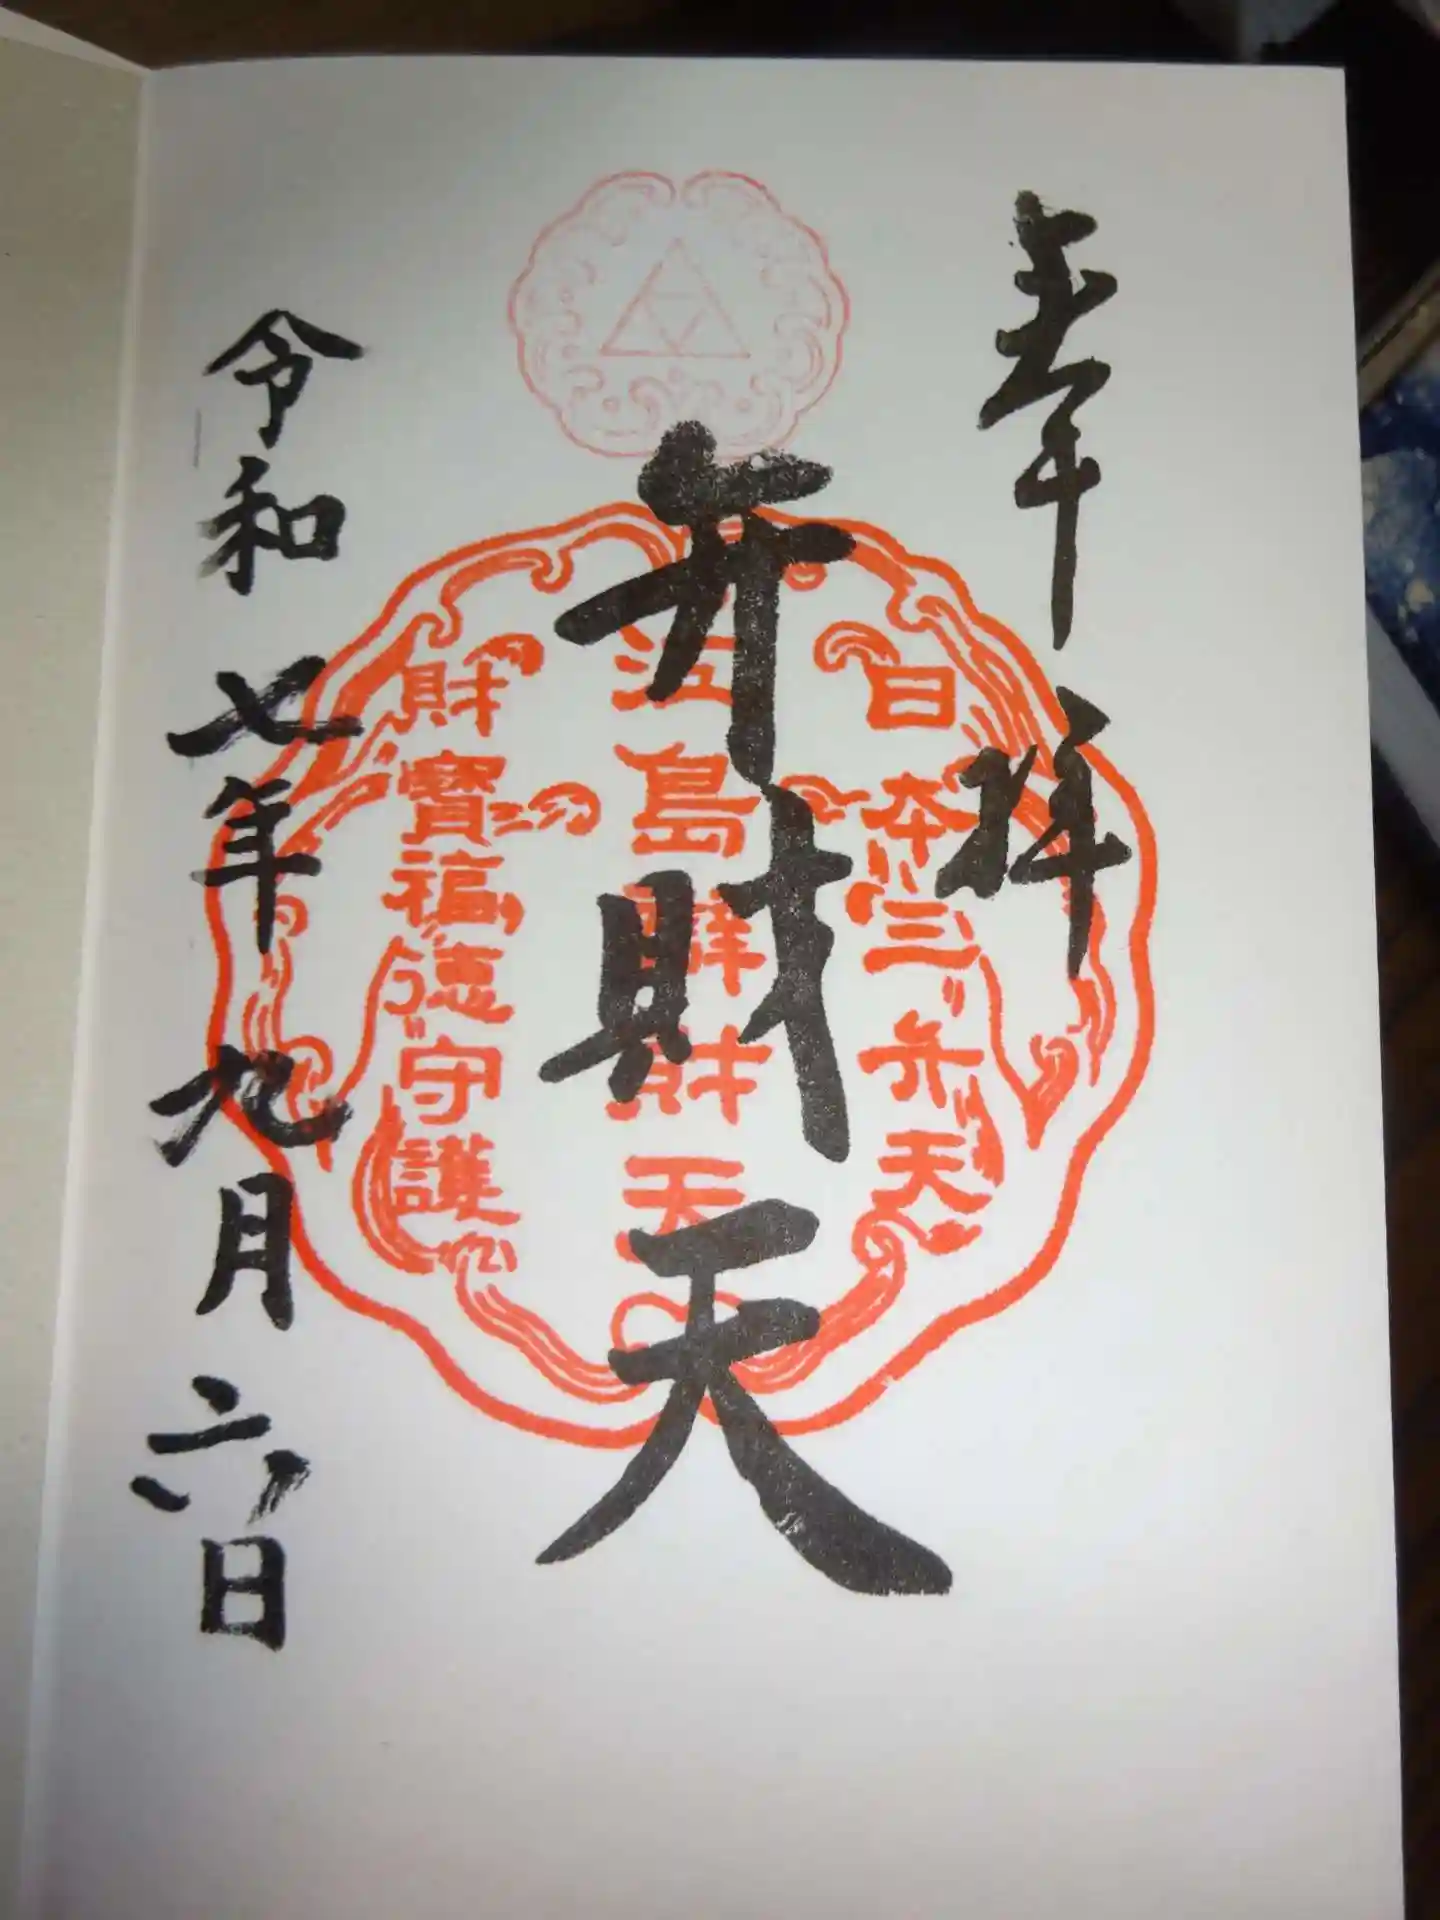 奉拝
日本三弁天
江島辨財天
財寳福徳守護
弁財天
令和七年九月六日